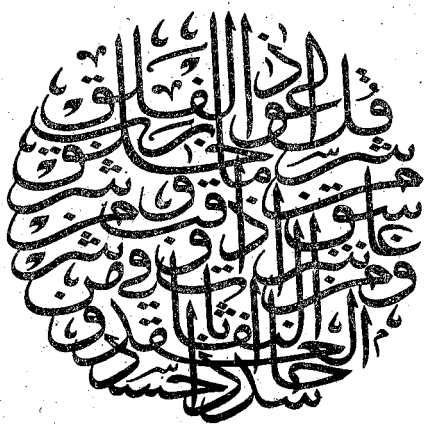 قل اعوذ برب الفلق
من شر ما خلق ومن شر
غاسق اذا وقب
ومن شر النفاثات في العقد ومن شر
حاسد اذا حسد